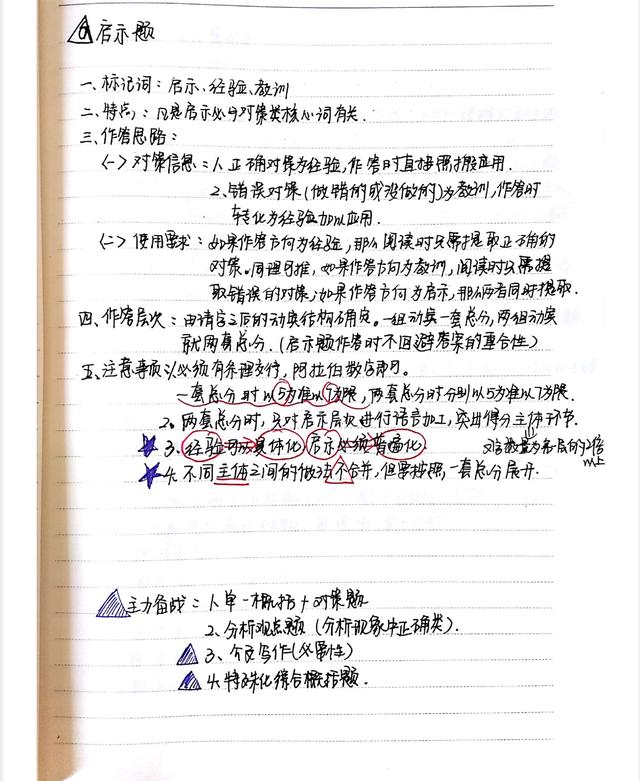 ⑥启示题
一、标记词：启示、经验、教训
二、特点：凡是启示必与对策类核心词有关.
三、作答思路：
(一)对策信息：1.正确对策为经验，作答时直接照搬应用.
2.错误对策(做错的或没做的)为教训，作答时
转化为经验加以应用.
(二)使用要求：如果作答方向为经验，那么阅读时只需提取正确的
对策。同理可推，如果作答方向为教训，阅读时只需提
取错误的对策；如果作答方向为启示，那么两者同时提取.
四、作答层次：由请字之后的动宾结构确定。一组动宾一套总分，两组动宾
就两套总分.(启示题作答时不回避答案的重合性)
五、注意事项：1.必须有条理支行，阿拉伯数字即可。
一套总分时以5为准以7为限，两套总分时分别以5为准以7为限.
2。两套总分时，只对启示层次进行语言加工，突出得分主体环节.
3.经验可以具体化 启示必须普遍化
4.不同主体之间的做法不合并，但需按照一套总分展开.
主力备战：1.单一概括+对策题
2、分析观点题(分析现象中正确类).
3、介文写作(必需性)
4.特殊化综合概括题.